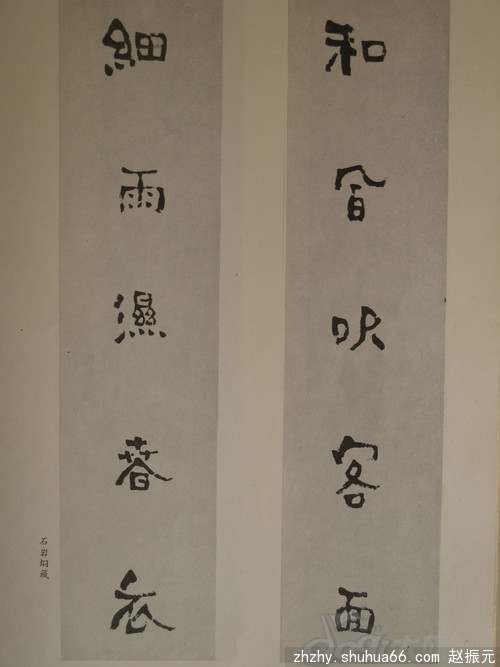 和風吹客面
細雨濕春衣
zhzhy.shuhua66.com 赵振元